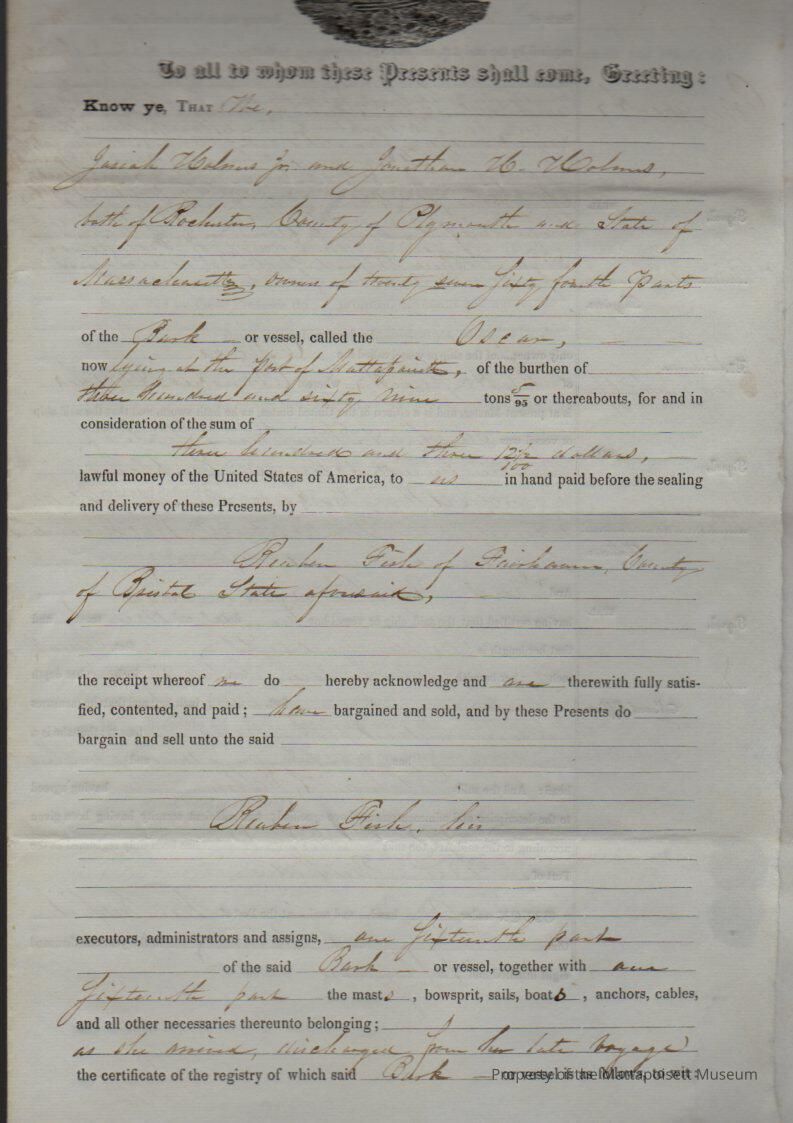 To all to whom these Presents shall come, Greeting:
Know ye, THAT We,
Josiah Holmes Jr. and Jonathan H. Holmes,
both of Rochester, County of Plymouth and State of
Massachusetts, owners of twenty seven sixty fourth Parts
of the Bark or vessel, called the Oscar,
now lying at the Port of Mattapoisett, of the burthen of
three Hundred and sixty nine tons 5/95 or thereabouts, for and in
consideration of the sum of
three hundred and three 12½/100 dollars,
lawful money of the United States of America, to us in hand paid before the sealing
and delivery of these Presents, by
Reuben Fish of Fairhaven, County
of Bristol State aforesaid,
the receipt whereof we do hereby acknowledge and are therewith fully satis-
fied, contented, and paid; have bargained and sold, and by these Presents do
bargain and sell unto the said
Reuben Fish, his
executors, administrators and assigns, one sixteenth part
of the said Bark or vessel, together with one
sixteenth part the masts, bowsprit, sails, boats, anchors, cables,
and all other necessaries thereunto belonging;
as she arrived, discharged from her late voyage
the certificate of the registry of which said Bark or vessel is as follows, to wit:
Property of the Mattapoisett Museum